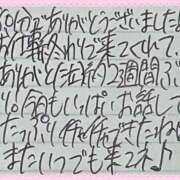 90分ありがとうございました!
お仕事終わりに来てくれて、
ありがとだよ 2週間ぶ
り。今回もいっぱいお話して
たっぷり できたね
またいつでも来てネ♪